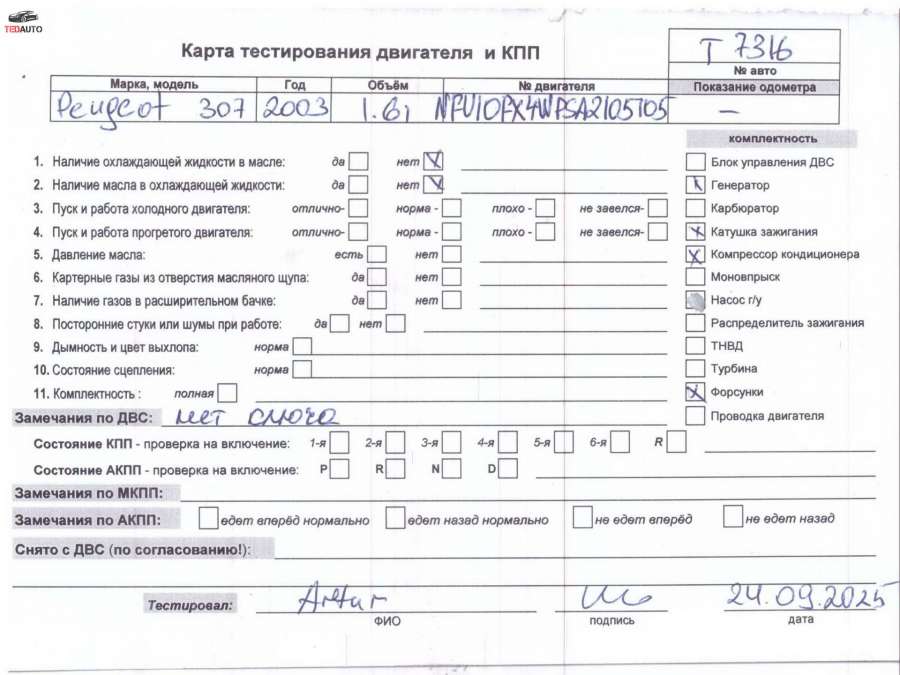 TEDAUTO
Карта тестирования двигателя и КПП
T 7316
№ авто
Марка, модель Год Объём № двигателя Показание одометра
Peugeot 307 2003 1.6i NFU10FX4WPSA2105705 —
комплектность
1. Наличие охлаждающей жидкости в масле: да нет
Блок управления ДВС
2. Наличие масла в охлаждающей жидкости: да нет
Генератор
3. Пуск и работа холодного двигателя: отлично- норма - плохо - не завелся-
Карбюратор
4. Пуск и работа прогретого двигателя: отлично- норма - плохо - не завелся-
Катушка зажигания
5. Давление масла: есть нет
Компрессор кондиционера
6. Картерные газы из отверстия масляного щупа: да нет
Моновпрыск
7. Наличие газов в расширительном бачке: да нет
Насос г/у
8. Посторонние стуки или шумы при работе: да нет
Распределитель зажигания
9. Дымность и цвет выхлопа: норма
ТНВД
10. Состояние сцепления: норма
Турбина
11. Комплектность : полная
Форсунки
Замечания по ДВС: нет
Проводка двигателя
Состояние КПП - проверка на включение: 1-я 2-я 3-я 4-я 5-я 6-я R
Состояние АКПП - проверка на включение: P R N D
Замечания по МКПП:
Замечания по АКПП: едет вперёд нормально едет назад нормально не едет вперёд не едет назад
Снято с ДВС (по согласованию!):
Тестировал: Artur 24.09.2025
ФИО подпись дата